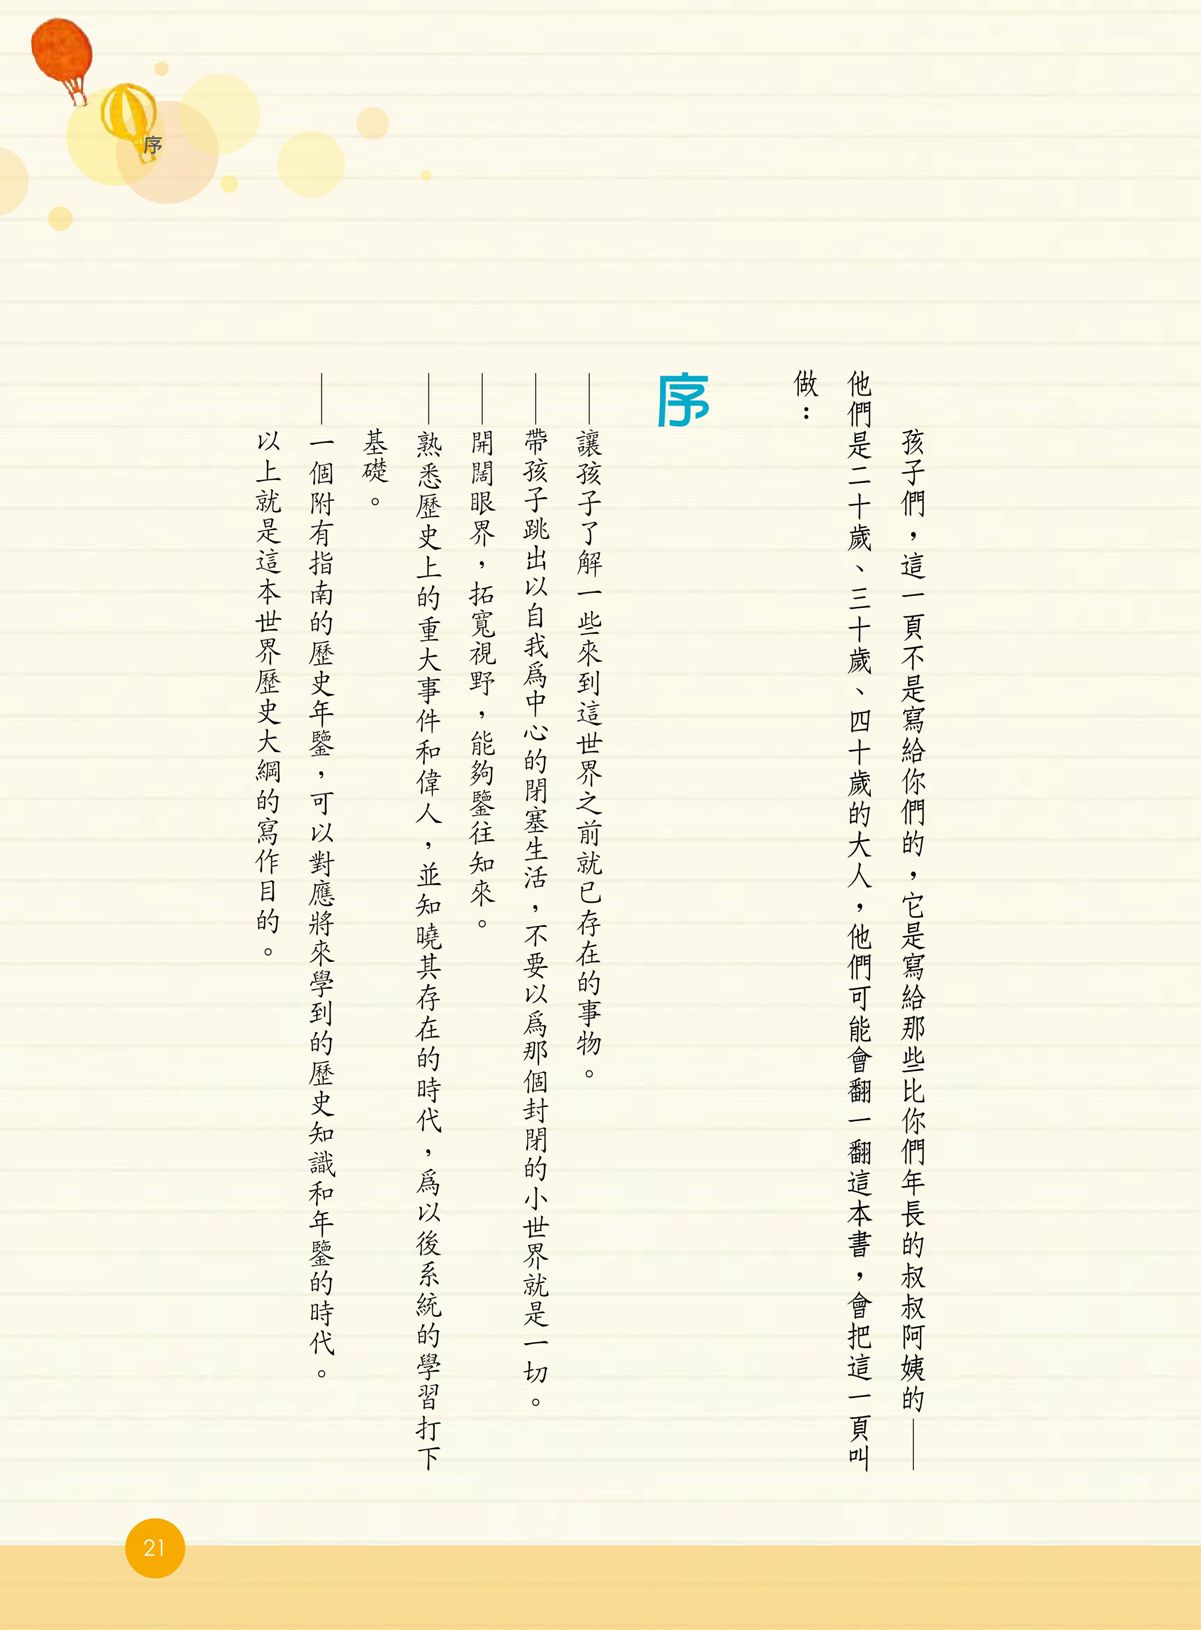 序
孩子們，這一頁不是寫給你們的，它是寫給那些比你們年長的叔叔阿姨的——
他們是二十歲、三十歲、四十歲的大人，他們可能會翻一翻這本書，會把這一頁叫
做：
序
——讓孩子了解一些來到這世界之前就已存在的事物。
——帶孩子跳出以自我為中心的閉塞生活，不要以為那個封閉的小世界就是一切。
——開闊眼界，拓寬視野，能夠鑒往知來。
——熟悉歷史上的重大事件和偉人，並知曉其存在的時代，為以後系統的學習打下
基礎。
——一個附有指南的歷史年鑒，可以對應將來學到的歷史知識和年鑒的時代。
以上就是這本世界歷史大綱的寫作目的。
21